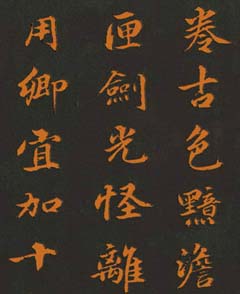 卷古色黯澹
匣劍光怪離
用卿宜加十